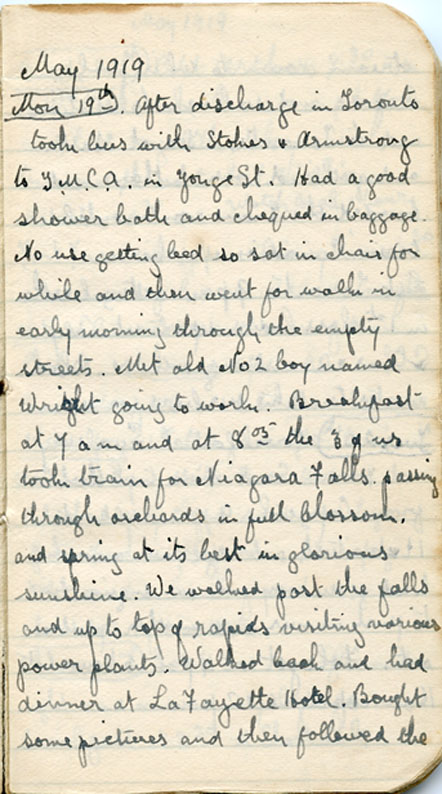 May 1919
Mon 19th. After discharge in Toronto
took bus with Stokes & Armstrong
to Y.M.C.A. in Yonge St. Had a good
shower bath and chequed in baggage.
No use getting bed so sat in chair for
while and then went for walk in
early morning through the empty
streets. Met old No 2 boy named
Wright going to work. Breakfast
at 7 am and at 8 05 the 3 of us
took train for Niagara Falls. passing
through orchards in full blossom.
and spring at its best in glorious
sunshine. We walked past the falls
and up to top of rapids visiting various
power plants. Walked back and had
dinner at LaFayette Hotel. Bought
some pictures and then followed the